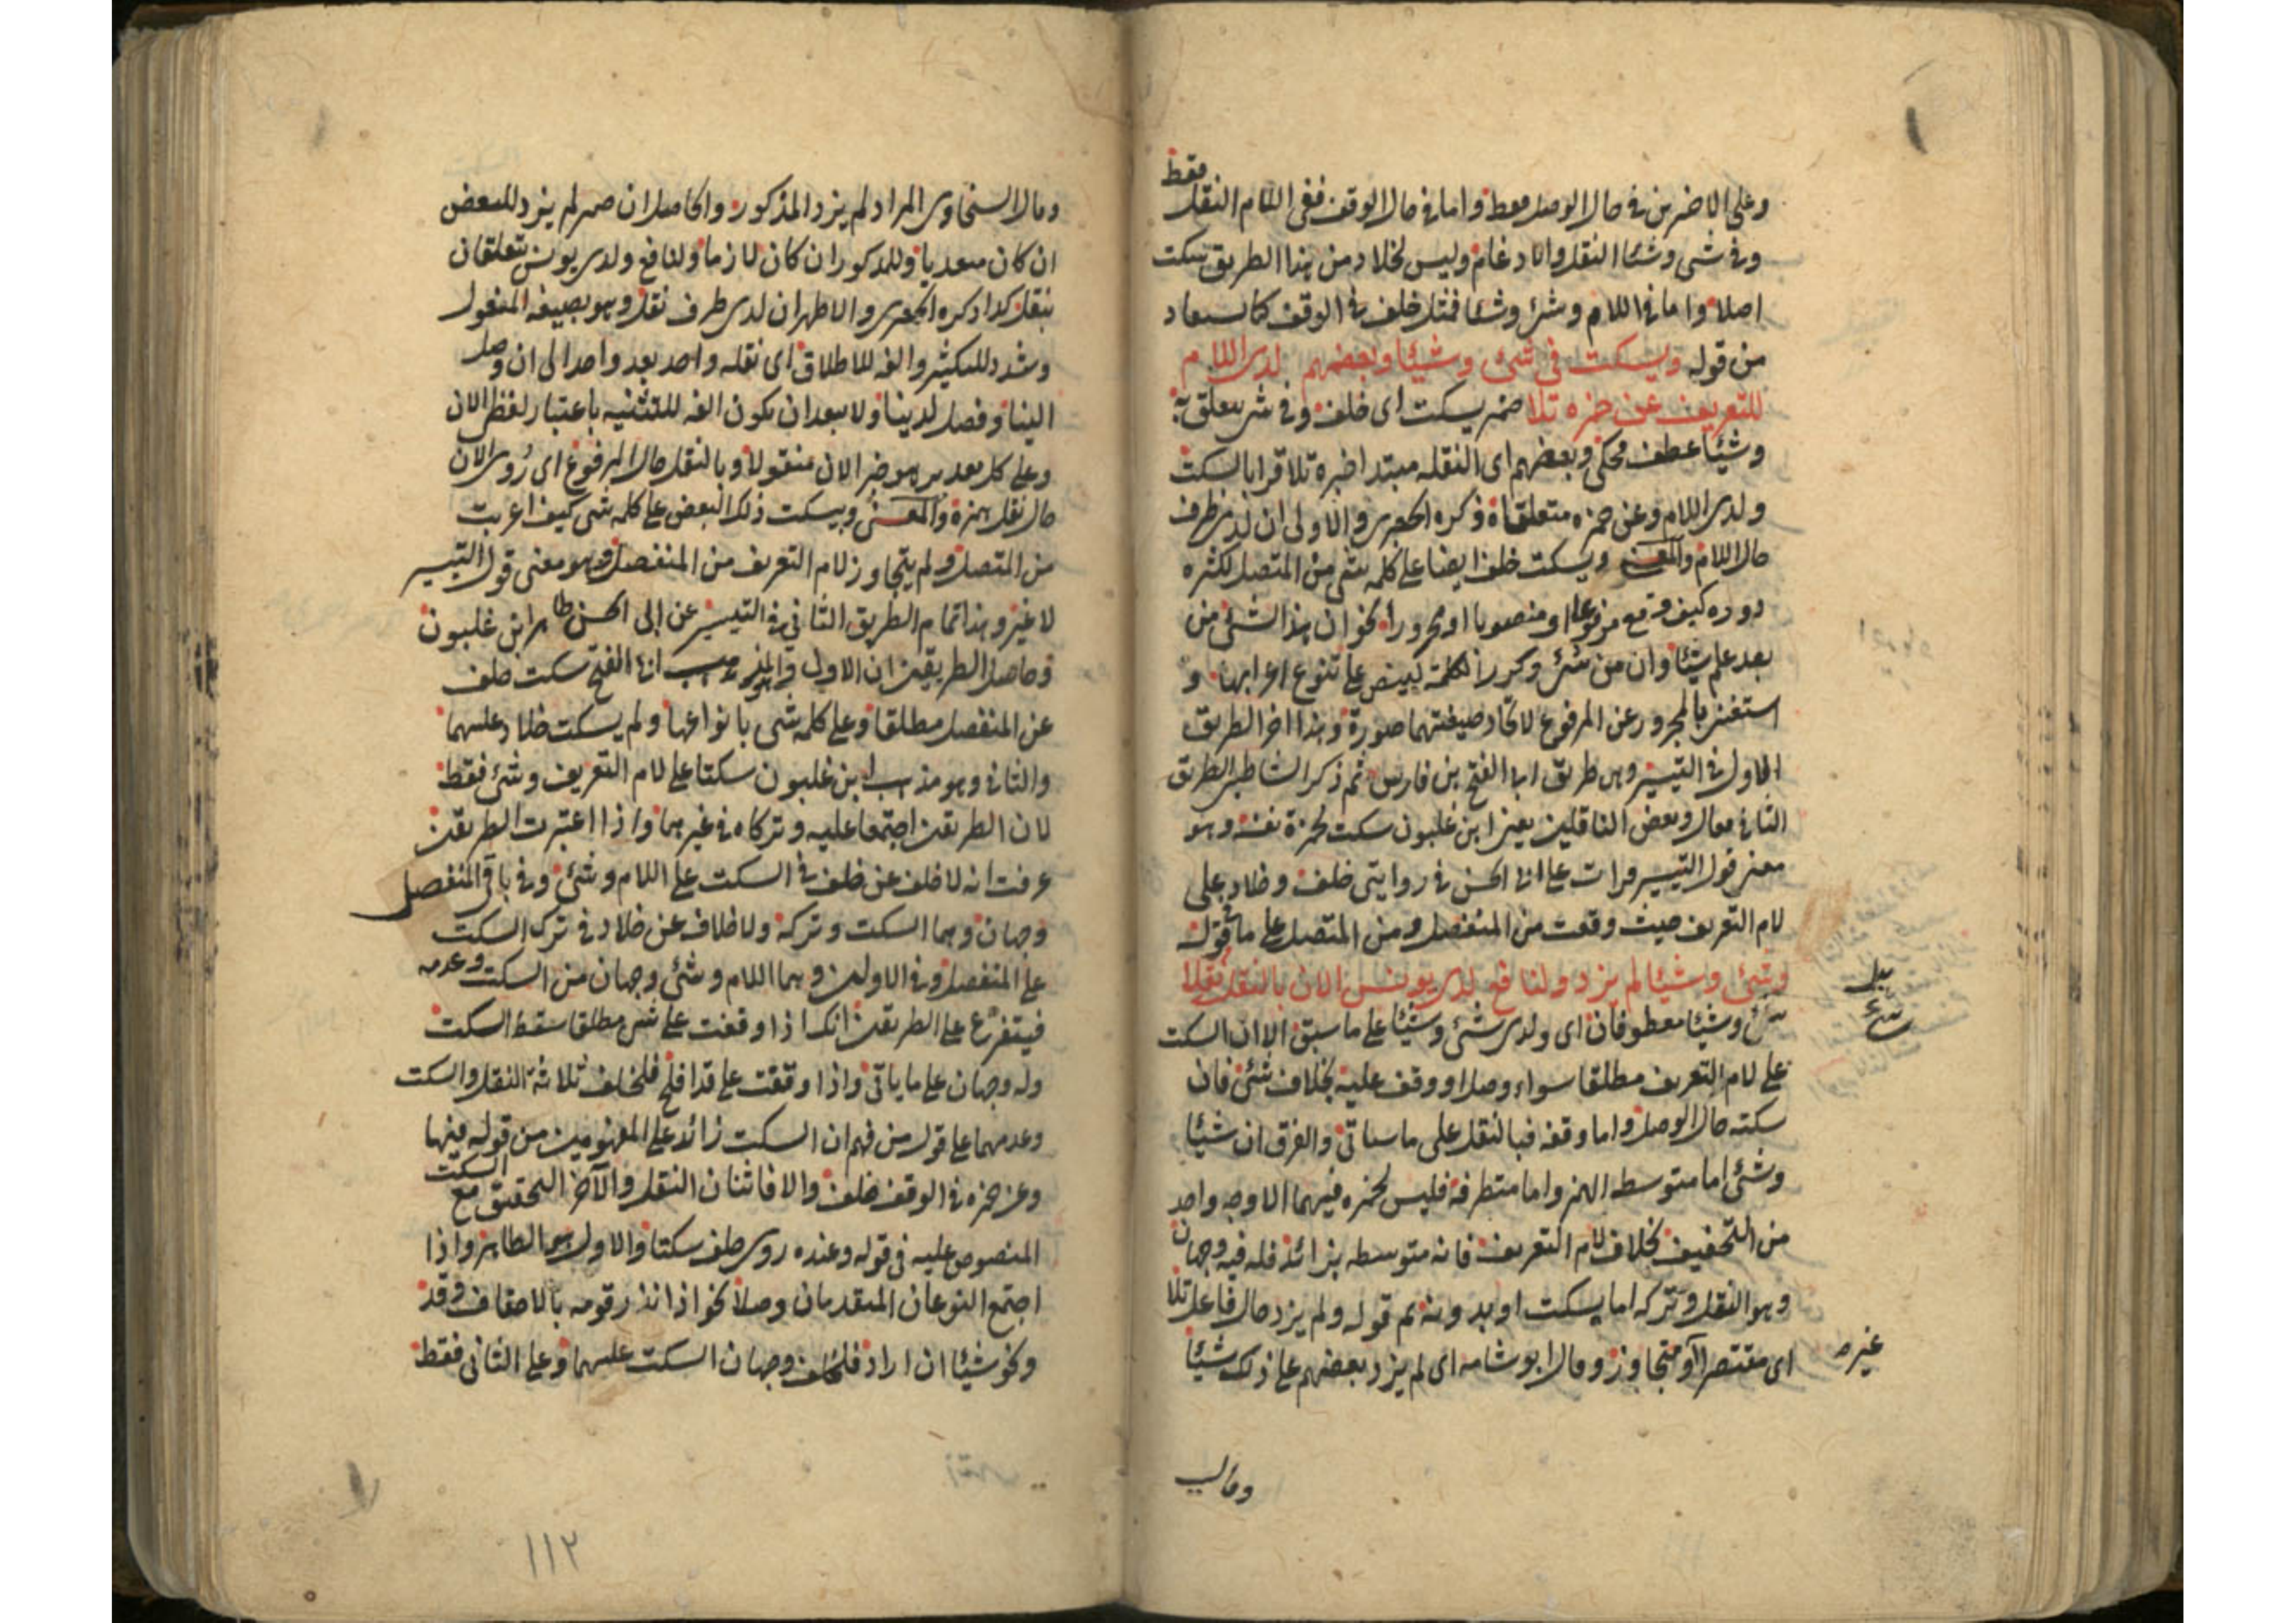 وعلى الاخيرين في حال الوصل فقط واما في حال الوقف ففي اللام النقل فقط
وفي شي وشيئا النقل والادغام وليس لخلاد من هذا الطريق سكت
اصلا واما في اللام وشئ وشيئا فمثل خلف في الوقف كما يستفاد
من قوله ويسكت في شئ وشيئا وبعضهم لدى اللام
للتعريف عن حمزه تلا ضمير يسكت اى خلف وفي شئ متعلق به
وشيئا عطف محكى وبعضهم اى النقله مبتدا خبره تلا قرا بالسكت
ولدى اللام وعن حمزه متعلقاه ذكره الجعبرى والاولى ان لدى ظرف
حال اللام والمعنى ويسكت خلف ايضا على كلمه شئ من المتصل لكثره
دوره كيف وقع مرفوعا او منصوبا او مجرورا نحو ان هذا الشئ من
بعد علم شيئا وان من شئ وكرر الكلمة لينص على تنوع اعرابها و
استغنى بالمجرور عن المرفوع لاتحاد صيغتهما صورة وهذا اخر الطريق
الاول في التيسير وهى طريق ابى الفتح بن فارس ثم ذكر الشاطبى الطريق
الثانى فقال وبعض الناقلين يعنى ابن غلبون سكت لحمزة نفسه وهو
معنى قول التيسير قرات على ابى الحسن في روايتى خلف وخلاد على
لام التعريف حيث وقعت من المنفصل ومن المتصل على ما قوله
وشئ وشيئا لم يزد ولنافع لدى يونس الان بالنقل نقلا
شئ وشيئا معطوفان اى ولدى شئ وشيئا على ما سبق الا ان السكت
على لام التعريف مطلقا سواء وصل او وقف عليه بخلاف شئ فان
سكته حال الوصل واما وقفه فبالنقل على ما سياتى والفرق ان شيئا
وشئ اما متوسطه الهمز واما متطرفه فليس لحمزه فيهما الا وجه واحد
من التخفيف بخلاف لام التعريف فانه متوسطه بزائد فله فيه وجهان
وهو النقل وتركه اما بسكت او بدونه ثم قوله ولم يزد حال فاعل تلا
اى مقتصرا او متجاوز وقال ابو شامه اى لم يزد بعضهم على ذلك شيئا
بدل
شئ
غيره
وقال
وقال السخاوى المراد لم يزد المذكور والحاصل ان ضمير لم يزد للبعض
ان كان متعديا وللمذكور ان كان لازما ولنافع ولدى يونس يتعلقان
بنقل كذا ذكره الجعبرى والاظهر ان لدى ظرف نقل وهو بصيغه المفعول
وشدد للتكثير والفه للاطلاق اى نقله واحد بعد واحد الى ان وصل
الينا وفصل لدينا ولا يبعد ان يكون الفه للتثنيه باعتبار لفظ الان
وعلى كل تقدير هو خبر الان منقولا وبالنقل حال المرفوع اى روى الان
حال نقل همزه والمعنى ويسكت ذلك البعض على كلمه شى كيف اعربت
من المتصل ولم يتجاوز لام التعريف من المنفصل وهو معنى قول التيسير
لا غير وهذا تمام الطريق الثانى في التيسير عن ابى الحسن طاهر ابن غلبون
وحاصل الطريقين ان الاول والمذهب ابى الفتح سكت خلف
عن المنفصل مطلقا وعلى كلمه شى بانواعها ولم يسكت خلاد عليهما
والثانى وهو مذهب ابن غلبون سكتا على لام التعريف وشئ فقط
لان الطريقين اجتمعا عليه وتركاه في غيرهما واذا اعتبرت الطريقين
عرفت انه لا خلف عن خلف في السكت على اللام وشئ وفي باقى المنفصل
وجهان وهما السكت وتركه ولا خلاف عن خلاد في ترك السكت
على المنفصل وفي الاولين وهما اللام وشئ وجهان من السكت وعدمه
فيتفرع على الطريقين انك اذا وقفت على شئ مطلقا سقط السكت
وله وجهان على ما ياتى واذا وقفت على قد افلح فلخلف ثلاثة النقل والسكت
وعدمهما على قول من فهم ان السكت زائد على المفهومين من قوله فيها
وعن حمزه في الوقف خلف والا فاثنان النقل والآخر التحقيق مع السكت
المنصوص عليه في قوله وعنده روى خلف سكتا والاول هو الظاهر واذا
اجتمع النوعان المتقدمان وصلا نحو اذ انذر قومه بالاحقاف وقد
ونحو شيئا ان اراد فلخلف وجهان السكت عليهما وعلى الثانى فقط
١١٢